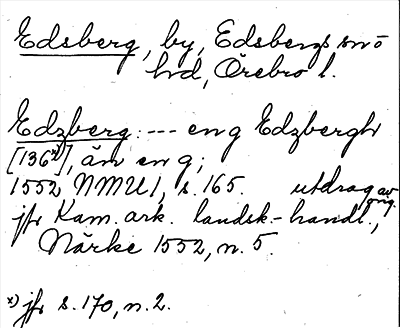 Edsberg, by, Edsbergs sn o
hd, Örebro l.
Edzberg: --- en g Edzbergh
[136 x)], än en g;
1552 NMU 1, s. 165. utdrag av
orig.
jfr Kam. ark. landsk.-handl.,
Närke 1552, n. 5.
x) jfr s. 170, n. 2.